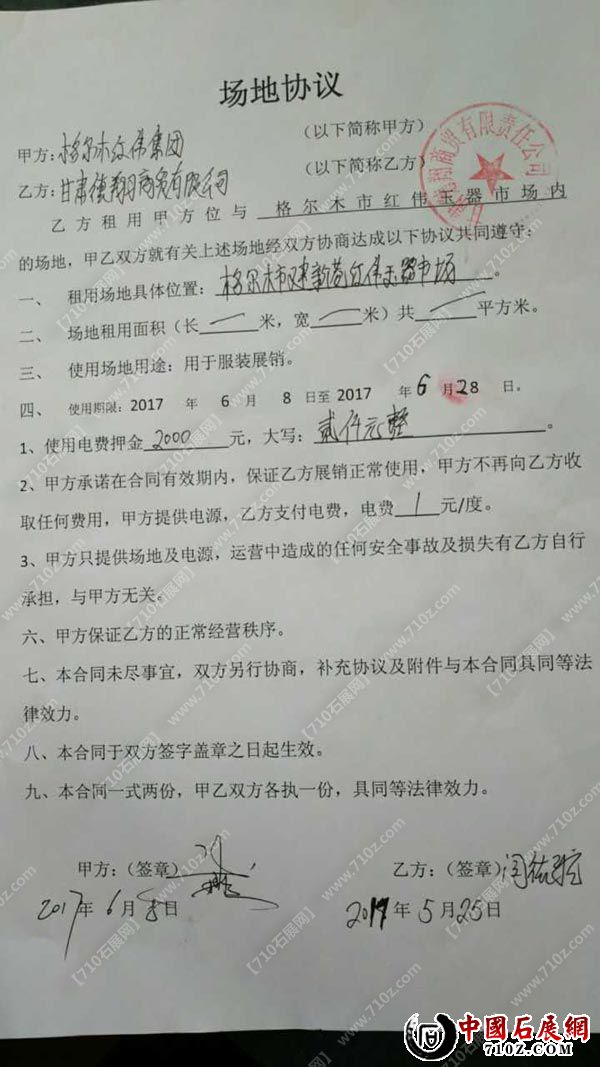 场地协议
甲方：格尔木红伟集团 （以下简称甲方）
乙方：甘肃德翔商贸有限公司 （以下简称乙方）
商贸有限责任公司
乙方租用甲方位与 格尔木市红伟玉器市场内
的场地，甲乙双方就有关上述场地经双方协商达成以下协议共同遵守：
一、 租用场地具体位置：格尔木市建新巷红伟玉器市场。
二、 场地租用面积（长 米，宽 米）共 平方米。
三、 使用场地用途：用于服装展销。
四、 使用期限：2017 年 6 月 8 日至 2017 年 6 月 28 日。
1、使用电费押金 2000 元，大写：贰仟元整。
2、甲方承诺在合同有效期内，保证乙方展销正常使用，甲方不再向乙方收
取任何费用，甲方提供电源，乙方支付电费，电费 1 元/度。
3、甲方只提供场地及电源，运营中造成的任何安全事故及损失有乙方自行
承担，与甲方无关。
六、甲方保证乙方的正常经营秩序。
七、本合同未尽事宜，双方另行协商，补充协议及附件与本合同具同等法
律效力。
八、本合同于双方签字盖章之日起生效。
九、本合同一式两份，甲乙双方各执一份，具同等法律效力。
甲方：（签章） 乙方：（签章）
2017年 6月 8日 2017年 5月 25日
【710石展网】 www.710z.com
中國石展網
710Z.COM